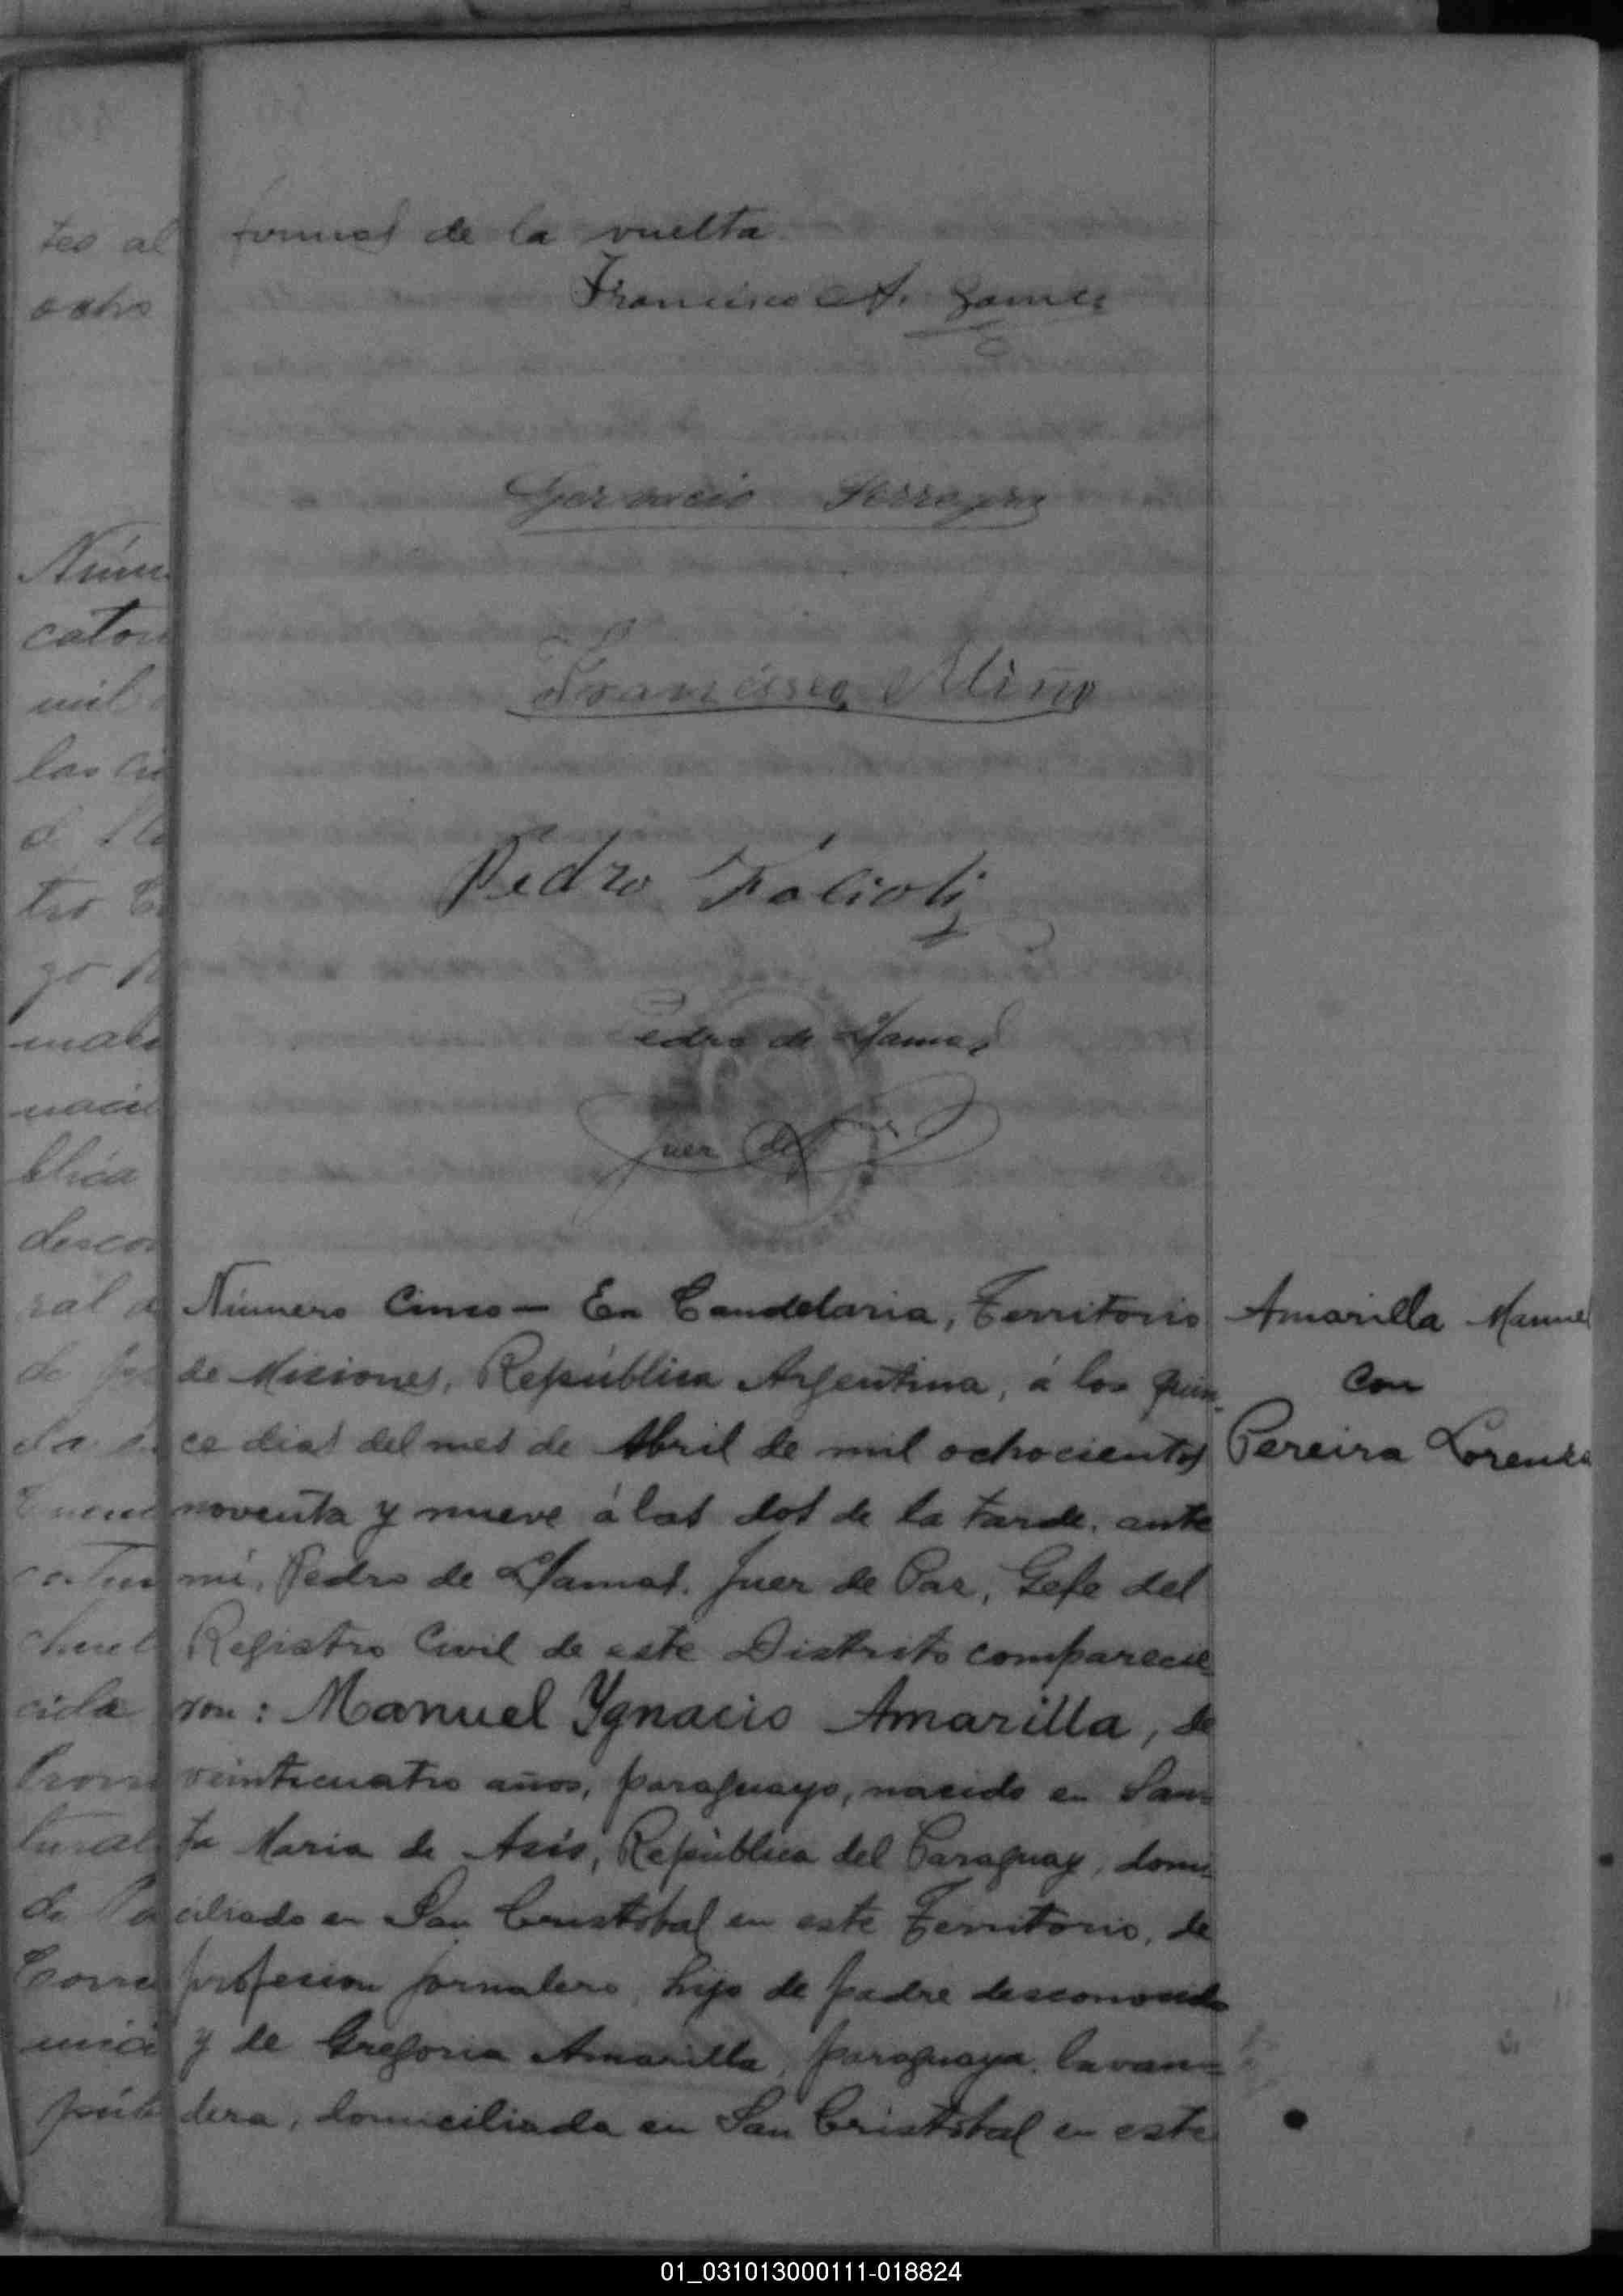 tes al
ocho
Núm
cator
mil
las
tro
go
mato
naci
blica
desco
ral
de
cida
tural
de
Corri
púb
formas de la vuelta
Francisco A. Gomez
Gervacio Ferreyra
Francisco Miño
Pedro Falcioli
Pedro de Llamas
Juez de Paz
Número Cinco — En Candelaria, Territorio
de Misiones, República Argentina, á los quin-
ce dias del mes de Abril de mil ochocientos
noventa y nueve á las dos de la tarde, ante
mi, Pedro de Llamas, Juez de Paz, Gefe del
Registro Civil de este Distrito comparecie
ron: Manuel Ygnacio Amarilla, de
veinticuatro años, paraguayo, nacido en San-
ta Maria de Asis, República del Paraguay, domi-
ciliado en San Cristobal en este Territorio, de
profesion jornalero, hijo de padre desconocido
y de Gregoria Amarilla, paraguaya, lavan=
dera, domiciliada en San Cristobal en este
Amarilla Manuel
con
Pereira Lorenza
01_031013000111-018824